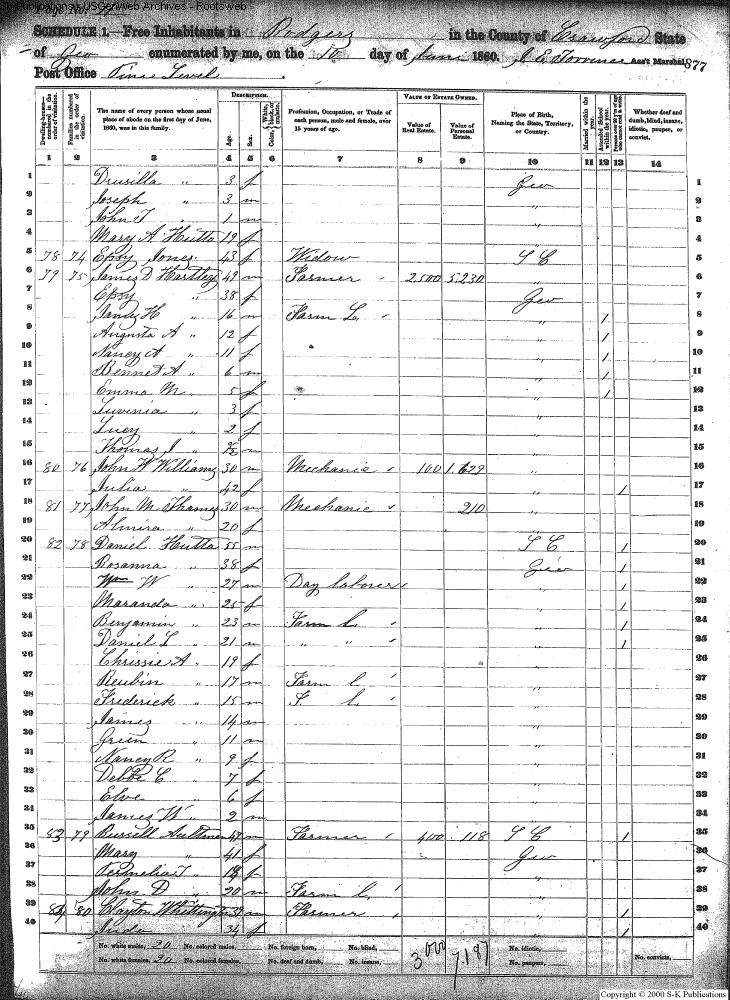 S-K Publications - USGenWeb Archives - Rootsweb
Page No.
SCHEDULE 1.—Free Inhabitants in Rodgers in the County of Crawford State
of Geo enumerated by me, on the day of June 1860. Ass't Marshal. 877
Post Office
Dwelling-houses—numbered in the order of visitation. Families numbered in the order of visitation. The name of every person whose usual place of abode on the first day of June, 1860, was in this family. DESCRIPTION. Age. Sex. Color, White, black, or mulatto. Profession, Occupation, or Trade of each person, male and female, over 15 years of age. VALUE OF ESTATE OWNED. Value of Real Estate. Value of Personal Estate. Place of Birth, Naming the State, Territory, or Country. Married within the year. Attended School within the year. Whether deaf and dumb, blind, insane, idiotic, pauper, or convict.
1 2 3 4 5 6 7 8 9 10 11 12 13 14
1 Drusilla " 3 f Geo 1
2 Joseph " 3 m " 2
3 John T " 1 m " 3
4 Mary A Hutto 19 f " 4
5 78 74 Epsy Jones 43 f Widow S C 5
6 79 75 James D Hartley 49 m Farmer 2,500 5,230 " 6
7 Epsy " 38 f Geo 7
8 H " 16 m Farm L. " / 8
9 Augusta A " 12 f " / 9
10 Nancy A " 11 f " / 10
11 Bennet A " 6 m " / 11
12 Emma M " 5 f " / 12
13 Luvinia " 3 f " 13
14 Lucy " 2 f " 14
15 Thomas J " m " 15
16 80 76 John W Williams 30 m Mechanic 100 1,629 " 16
17 Julia " 42 f " / 17
18 81 77 John M Thames 30 m Mechanic 210 " 18
19 Almira " 20 f " 19
20 82 78 Daniel Hutto 55 m S C / 20
21 Rosanna " 38 f Geo / 21
22 Wm W " 27 m Day laborer " / 22
23 Maranda " 25 f " / 23
24 Benjamin " 23 m Farm L. " / 24
25 Daniel L " 21 m " " " / 25
26 Chrissie A " 19 f " 26
27 Reubin " 17 m Farm L " 27
28 Frederick " 15 m F. L. " 28
29 James " 14 m " 29
30 Green " 11 m " 30
31 Nancy R " 9 f " 31
32 C " 7 f " 32
33 " 6 f " 33
34 James W " 2 m " 34
35 83 79 Russell Aultman 47 m Farmer 400 118 S C / 35
36 Mary " 41 f Geo 36
37 " f " 37
38 John D " 20 m Farm L " 38
39 84 80 Clayton Whittington m Farmer " / 39
40 34 f " / 40
No. white males, 20 No. colored males, No. foreign born, No. blind, 3000 7,187 No. idiotic,
No. white females, 20 No. colored females, No. deaf and dumb, No. insane, No. paupers, No. convicts,
Copyright © 2000 S-K Publications